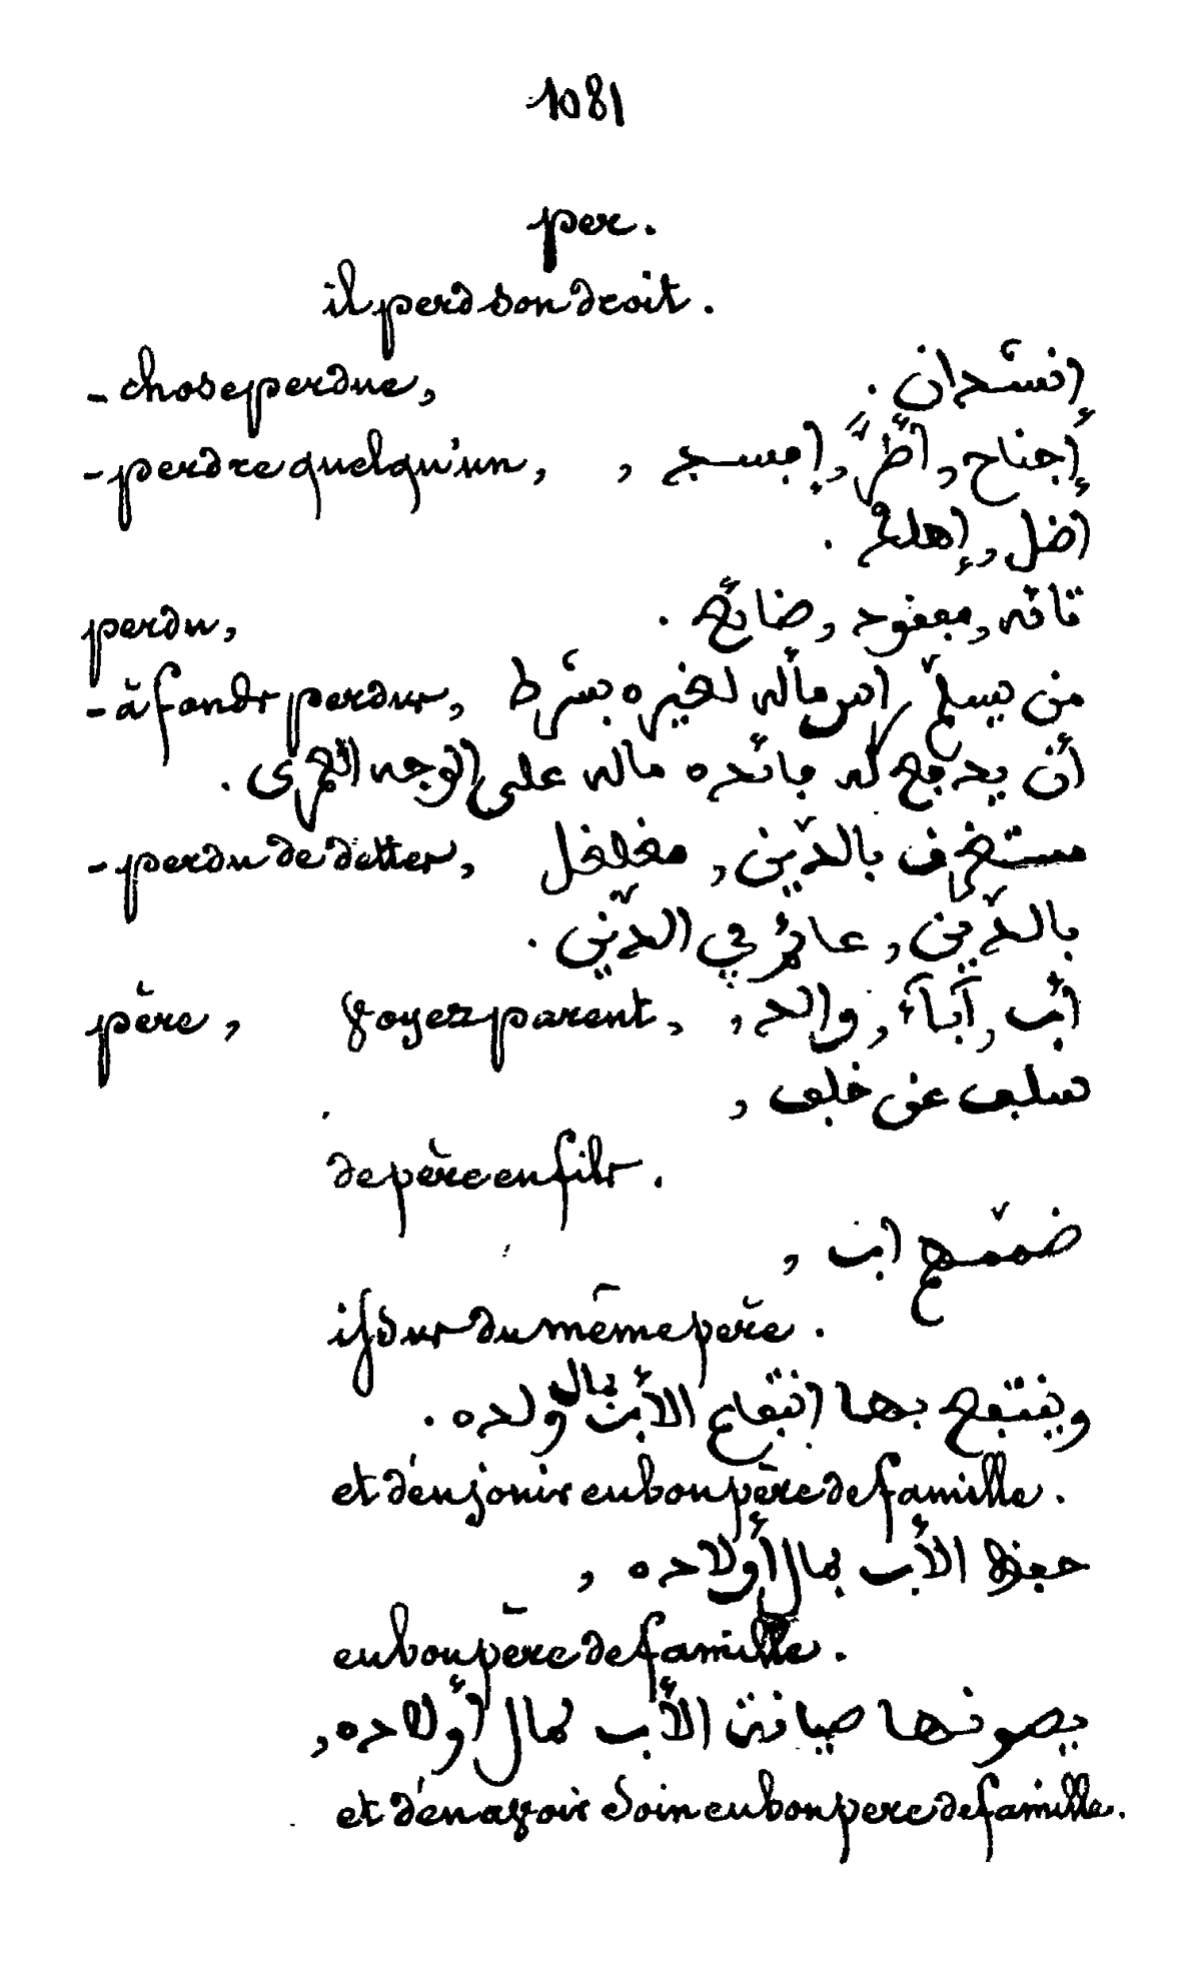 1081
per.
il perd son droit.
- chose perdue, انشدان.
- perdre quelqu'un, أجناح, أضرّ, إفسد,
أضل, إهلاع.
perdu, تائه, مفقود, ضائع.
- à fonds perdus, من يسلم رأس ماله لغيره بشرط
أن يدفع له فائدة ماله على الوجه العمرى.
- perdu de dettes, مستغرف بالدّين, مغلغل
بالدّين, عائم في الدّين.
père, voyez parent, أب, آباء, والد,
سلف عن خلف,
de père en fils.
أب,
issus du même père.
وينتفع بها انتفاع الأب بمال ولده.
et d'en jouir en bon père de famille.
حفظ الأب بمال أولاده,
en bon père de famille.
يصونها صيانة الأب لمال أولاده,
et d'en avoir soin en bon pere de famille.